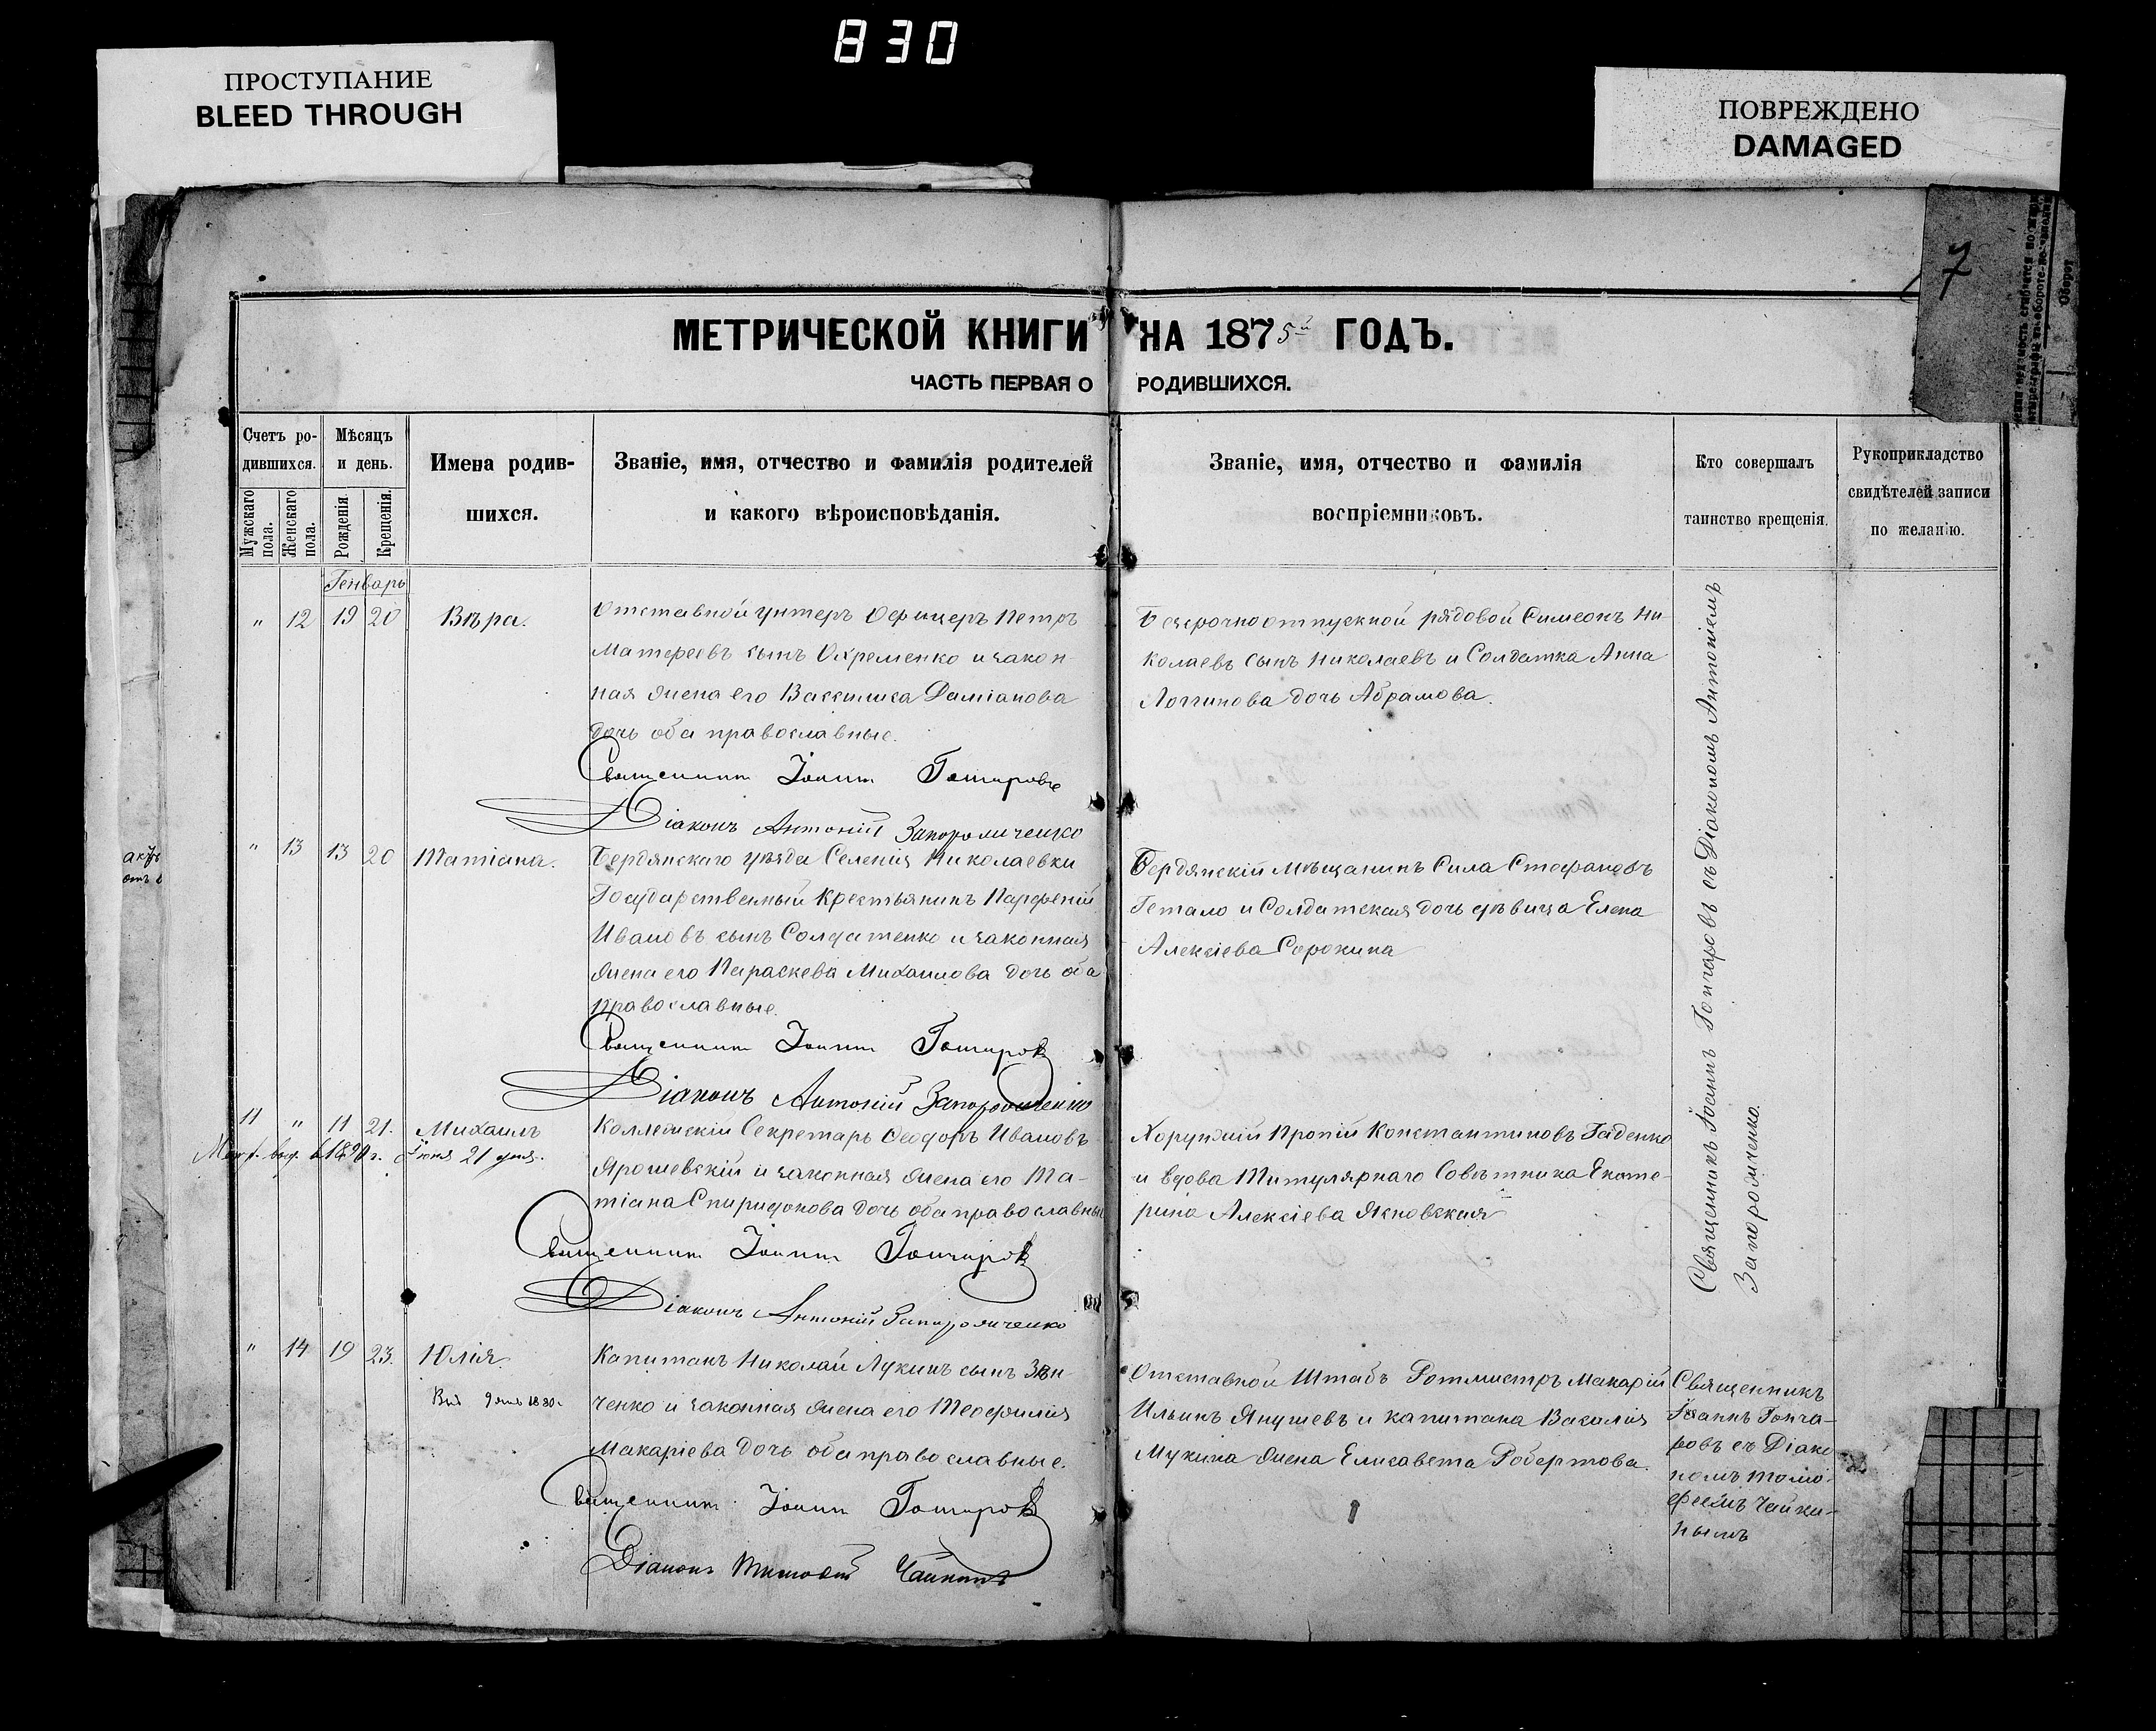 830
ПРОСТУПАНИЕ
BLEED THROUGH
ПОВРЕЖДЕНО
DAMAGED
7
МЕТРИЧЕСКОЙ КНИГИ НА 1875й ГОДЪ.
ЧАСТЬ ПЕРВАЯ О РОДИВШИХСЯ.
Счетъ ро-
дившихся.
Мужскаго пола.
Женскаго пола.
Мѣсяцъ
и день.
Рожденія
Крещенія.
Имена родив-
шихся.
Званіе, имя, отчество и фамилія родителей
и какого вѣроисповѣданія.
Званіе, имя, отчество и фамилія
воспріемниковъ.
Кто совершалъ
таинство крещенія.
Рукоприкладство
свидѣтелей записи
по желанію.
Генварь
" 12 19 20 Вѣра.
Отставной Унтеръ Офицеръ Петръ
Матфеевъ сынъ Охременко и закон-
ная жена его Вассилиса Даміанова
дочь оба православные.
Священникъ Іоаннъ Гончаровъ
Діаконъ Антоній Запорожченко
Безсрочноотпускной рядовой Симеонъ Ни-
колаевъ сынъ Николаевъ и Солдатка Анна
Логгинова дочь Абрамова.
" 13 13 20 Татіана.
Бердянскаго уѣзда Селенія Николаевки
Государственный Крестьянинъ Парфеній
Ивановъ сынъ Солдатенко и законная
жена его Параскева Михаилова дочь оба
православные.
Священникъ Іоаннъ Гончаровъ
Діаконъ Антоній Запорожченко
Бердянскій мѣщанинъ Сила Стефановъ
Гетало и Солдатская дочь дѣвица Елена
Алексіева Сорокина
11 " 11 21. Михаилъ
Метр. выд. 1890 г. Іюня 21 дня.
Коллежскій Секретарь Феодоръ Ивановъ
Ярошевскій и законная жена его Та-
тіана Спиридонова дочь оба православные
Священникъ Іоаннъ Гончаровъ
Діаконъ Антоній Запорожченко
Хорунжій Прокій Константиновъ Гаденко
и вдова Титулярнаго Совѣтника Екате-
рина Алексіева Яновская
Священникъ Іоаннъ Гончаровъ съ Діакономъ Антоніемъ
Запорожченко.
" 14 19 23. Юлія.
1880
Капитанъ Николай Лукинъ сынъ Зѣн-
ченко и законная жена его Теофилія
Макаріева дочь оба православные.
Священникъ Іоаннъ Гончаровъ
Діаконъ Тимофей Чайкинъ
Отставной Штабъ Ротмистръ Макарій
Ильинъ Янушевъ и капитана Василія
Мукина жена Елисавета Робертова.
Священникъ
Іоаннъ Гонча-
ровъ съ Діако
номъ Тимо-
феемъ Чайки-
нымъ